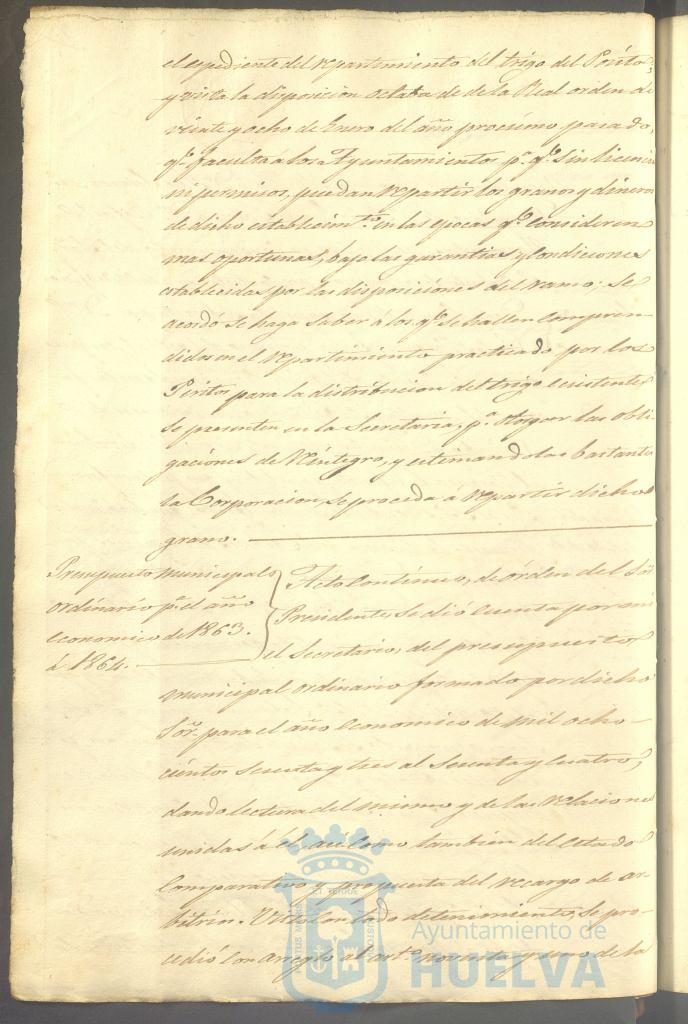 el espediente del repartimiento del trigo del Pósito,
y vista la disposicion octaba de de la Real orden de
veinte y ocho de Enero del año procsimo pasado,
qe. faculta á los Ayuntamientos pa. qe. sin licencia
ni permisos, puedan repartir los granos y dineros
de dicho establecimto. en las epocas qe. consideren
mas oportunas, bajo las garantias y condiciones
establecidas por las disposiciones del ramo; se
acordó se haga saber á los qe. se hallen compren-
didos en el repartimiento practicado por los
Peritos para la distribucion del trigo ecsistente
se presenten en la Secretaria, pa. otorgar las obli-
gaciones de Reintegro, y estimandolas bastante
la Corporacion, se proceda á repartir dicho
grano.
Presupuesto municipal
ordinario pa. el año
economico de 1863.
á 1864.
Acto continuo, de órden del Sor.
Presidente, se dió cuenta por mi
el Secretario, del presupuesto
municipal ordinario formado por dicho
Sor. para el año economico de mil ocho-
cientos sesenta y tres al sesenta y cuatro,
dando lectura del mismo y de las relaciones
unidas á él, así como tambien del estado
comparativo y propuesta del recargo de ar-
bitrios. Visto con todo detenimiento, se pro-
cedió con arreglo al arto. noventa y uno de la
Ayuntamiento de
HUELVA